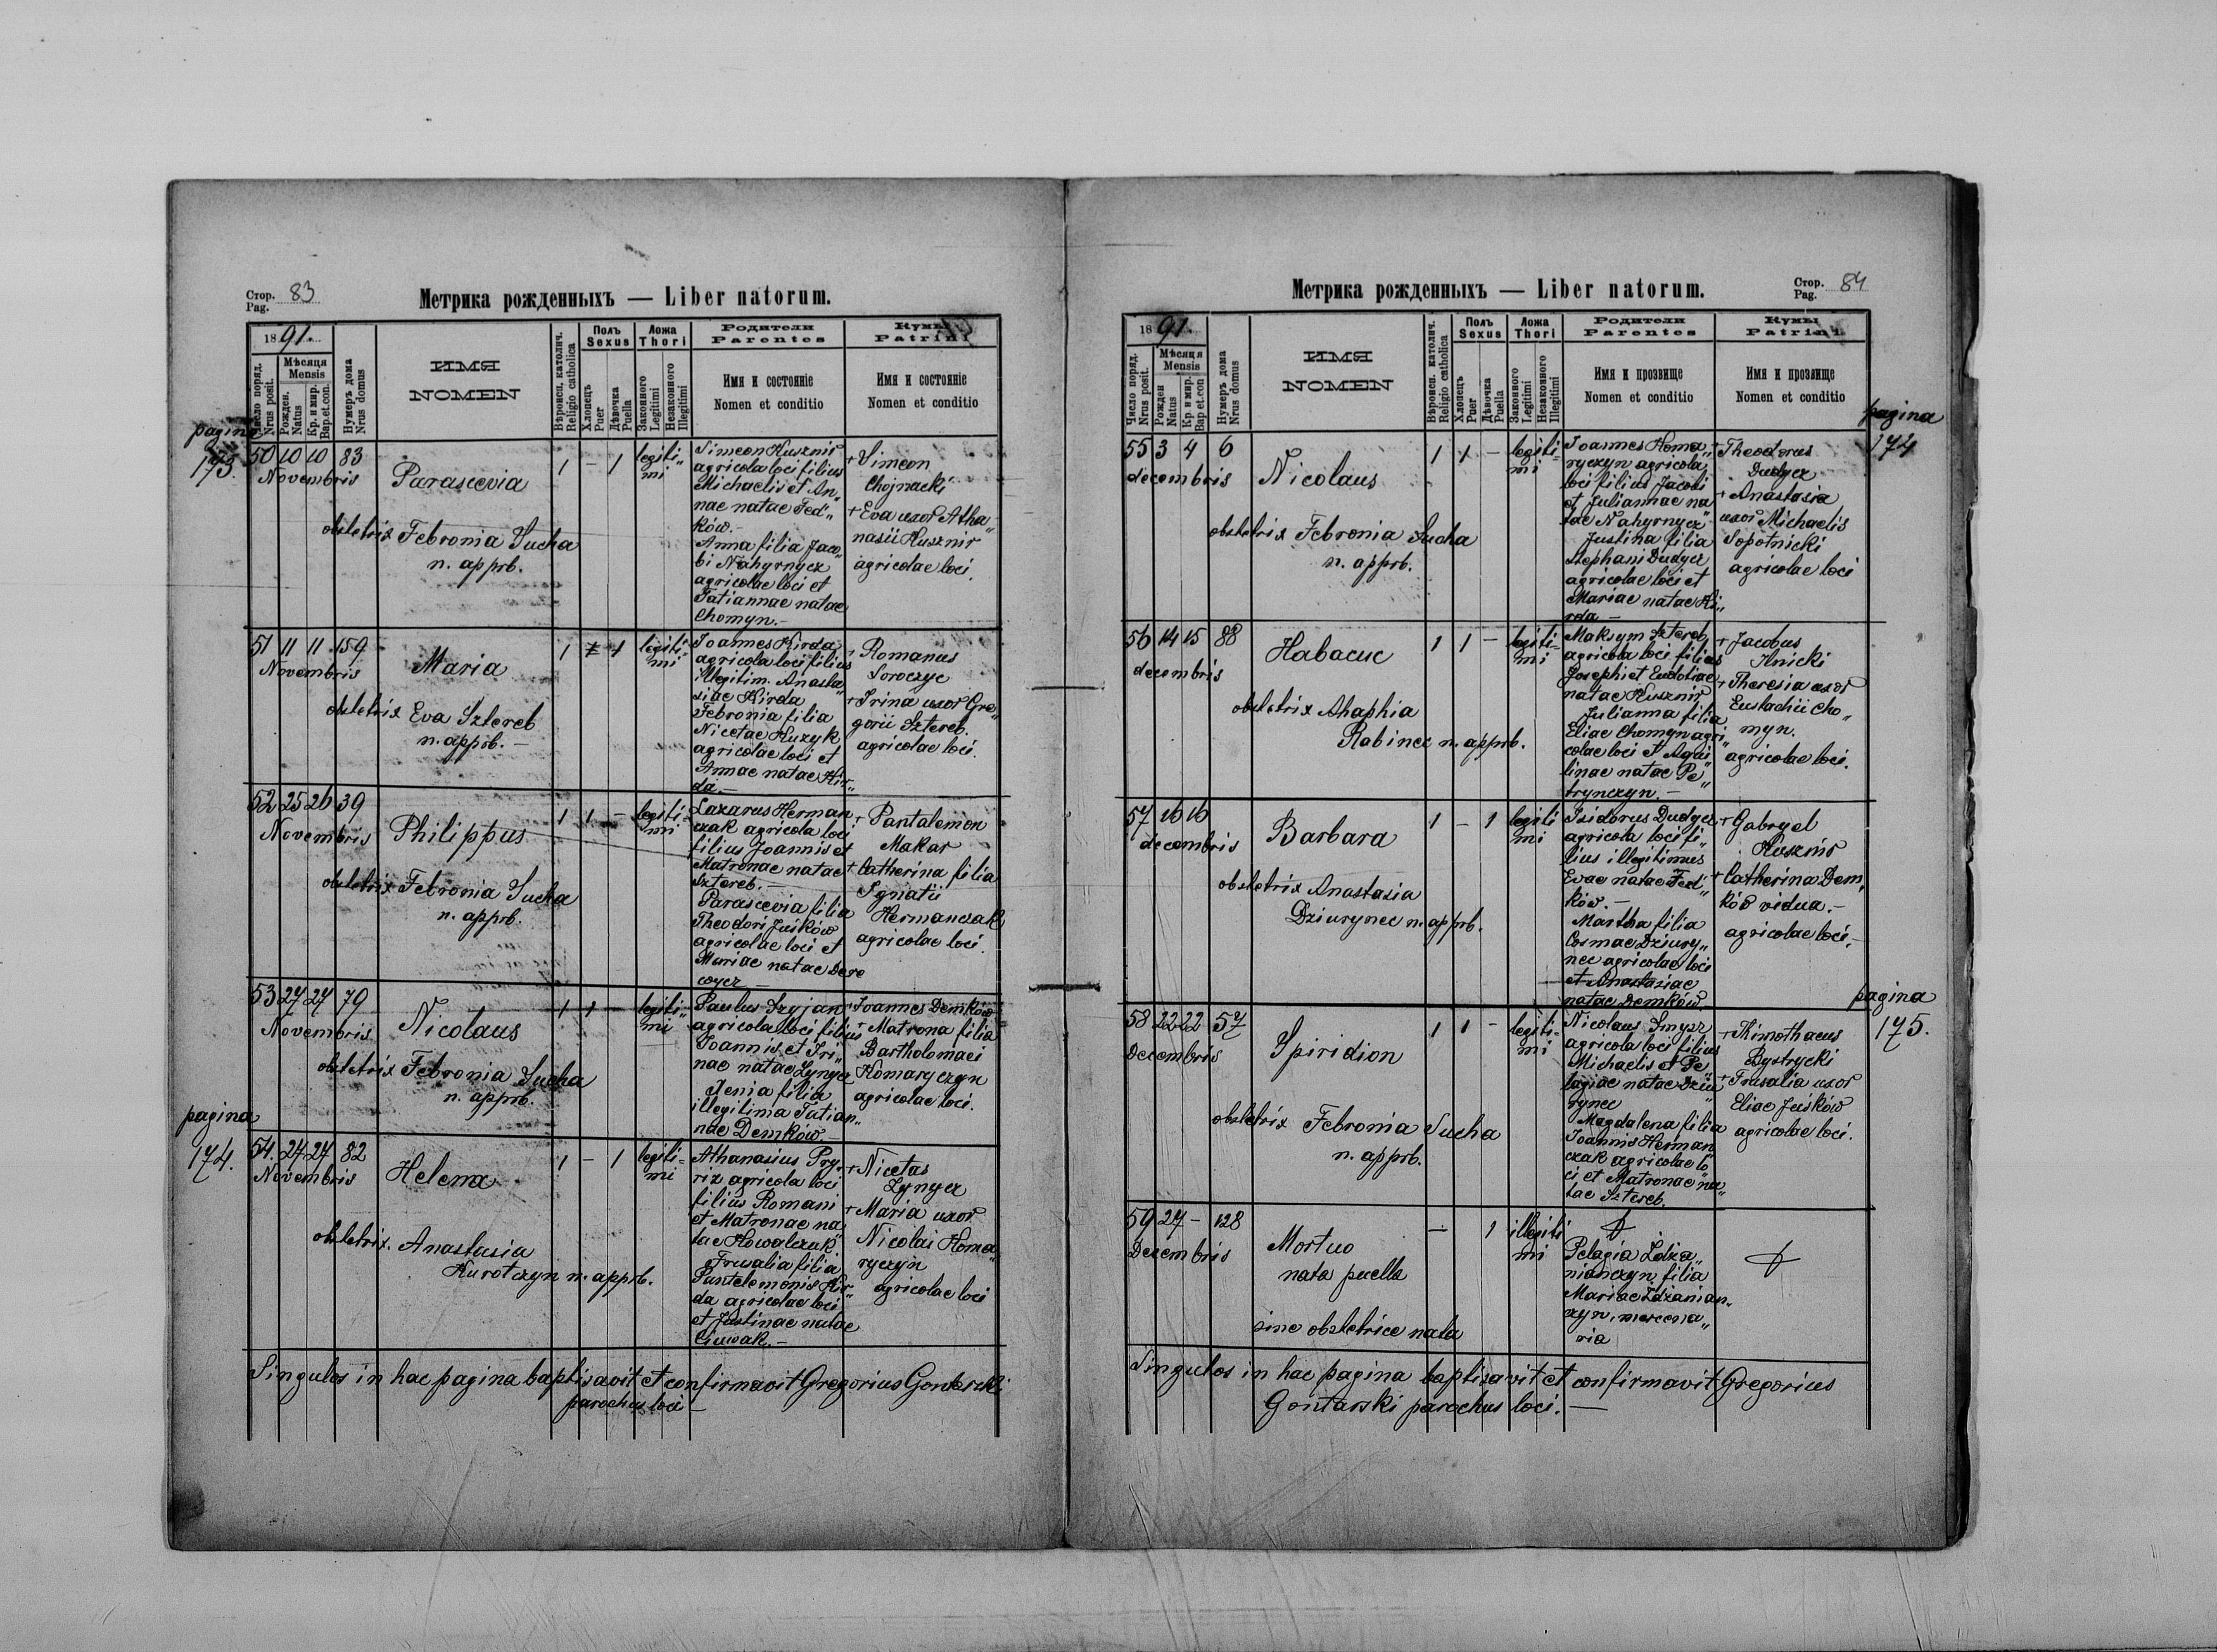 Стор. 83
Pag.
Метрика рожденныхъ — Liber natorum.
1891.
Число поряд.
Nrus posit.
Мѣсяця
Mensis
Рожден.
Natus
Кр. и мир.
Bap.et.con.
Нумеръ дома
Nrus domus
ИМЯ
NOMEN
Вѣроисп. католич.
Religio catholica
Полъ
Sexus
Хлопецъ
Puer
Дѣвочка
Puella
Ложа
Thori
Законного
Legitimi
Незаконного
Illegitimi
Родители
Parentes
Имя и состояніе
Nomen et conditio
Кумы
Patrini
Имя и состояніе
Nomen et conditio
pagina
173.
50 10 10 83
Novembris
Parascevia
obstetrix Febronia Sucha
n. approb.
1 – 1
legiti„
mi
Simeon Kusznir
agricola loci filius
Michaelis et An„
nae natae Fed„
ków.–
Anna filia Jaco„
bi Nahyrnycz
agricolae loci et
Tatiannae natae
Chomyn.–
+ Simeon
Chojnacki
+ Eva uxor Atha„
nasii Kusznir
agricolae loci.
51 11 11 159
Novembris
Maria
obstetrix Eva Sztereb
n. approb.–
1 1
legiti„
mi
Joannes Kirda
agricola loci filius
illegitim. Anasta„
siae Kirda
Febronia filia
Nicetae Kuzyk
agricolae loci et
Annae natae Kir„
da.–
+ Romanus
Soroczyc
+ Irina uxor Gre„
gorii Sztereb.
agricolae loci.
52 25 26 39
Novembris
Philippus
obstetrix Febronia Sucha
n. approb.
1 1 –
legiti„
mi
Lazarus Herman
czak agricola loci
filius Joannis et
Matronae natae
Sztereb.–
Parascevia filia
Theodori Juśków
agricolae loci et
Mariae natae Dere
wycz –
+ Pantalemon
Makar
+ Catherina filia
Ignatii
Hermanczak
agricolae loci.
53 27 27 79
Novembris
Nicolaus
obstetrix Febronia Sucha
n. approb.
1 1 –
legiti„
mi
Paulus Szyjan
agricola loci filius
Joannis et Iri„
nae natae Lynycz
Xenia filia
illegitima Tatian„
nae Demków.–
+ Joannes Demków
+ Matrona filia
Bartholomaei
Komaryczyn
agricolae loci.
pagina
174.
54. 24 24 82
Novembris
Helena
obstetrix. Anastasia
Kurotczyn n. approb.
1 – 1
legiti„
mi
Athanasius Pry„
riz agricola loci
filius Romani
et Matronae na„
tae Kowalczuk
Frusalia filia
Pantelemonis Kir„
da agricolae loci
et Justinae natae
Ciuwak.–
+ Nicetas
Lynycz
+ Maria uxor
Nicolai Homa„
ryczyn
agricolae loci
Singulos in hac pagina baptisavit et confirmavit Gregorius Gontarski
parochus loci –
Стор. 84
Pag.
Метрика рожденныхъ — Liber natorum.
1891.
Число поряд.
Nrus posit.
Мѣсяця
Mensis
Рожден
Natus
Кр. и мир.
Bap et.con
Нумеръ дома
Nrus domus
ИМЯ
NOMEN
Вѣроисп. католич.
Religio catholica
Полъ
Sexus
Хлопецъ
Puer
Дѣвочка
Puella
Ложа
Thori
Законного
Legitimi
Незаконного
Illegitimi
Родители
Parentes
Имя и прозвище
Nomen et conditio
Кумы
Patrini
Имя и прозвище
Nomen et conditio
pagina
174
55 3 4 6
decembris
Nicolaus
obstetrix Febronia Sucha
n. approb.
1 1 –
legiti„
mi
Joannes Homa„
ryczyn agricola
loci filius Jacobi
et Juliannae na
tae Nahyrnycz
Justina filia
Stephani Dudycz
agricolae loci et
Mariae natae Ki„
rda –
+ Theodorus
Dudycz
+ Anastasia
uxor Michaelis
Sopotnicki
agricolae loci
56 14 15 88
decembris
Habacuc
obstetrix Ahaphia
Rabinec n. approb.
1 1 –
legiti„
mi
Maksym Sztereb
agricola loci filius
Josephi et Eudotiae
natae Kusznir
Julianna filia
Eliae Chomyn agri„
colae loci et Aqui„
linae natae Pe„
trynczyn.–
+ Jacobus
Ilnicki
+ Theresia uxor
Eustachii Cho„
myn.
agricolae loci.
57 16 16
decembris
Barbara
obstetrix Anastasia
Dziurynec n. approb.
1 – 1
legiti
mi
Isidorus Dudycz
agricola loci fi„
lius illegitimus
Evae natae Fed„
ków.–
Martha filia
Cosmae Dziury„
nec agricolae loci
et Anastasiae
natae Demków.
+ Gabryel
Kusznir
+ Catherina Dem„
ków vidua.–
agricolae loci.–
pagina
175.
58 22 22 57
Decembris
Spiridion
obstetrix Febronia Sucha
n. approb.
1 1 –
legiti„
mi
Nicolaus Smysz
agricola loci filius
Michaelis et Pe„
lagiae natae Dziu„
rynec
Magdalena filia
Joannis Herman
czak agricolae lo„
ci et Matronae na„
tae Sztereb.
+ Thimothaeus
Bystrycki
+ Frusalia uxor
Eliae Juśków
agricolae loci.
59 27 – 128
Decembris
Mortuo
nata puella
sine obstetrice nata
– 1
illegiti
mi
Pelagia Zdża„
nianczyn filia
Mariae Zdżanian„
czyn, mercena„
ria
Singulos in hac pagina baptizavit et confirmavit Gregorius
Gontarski parochus loci.–